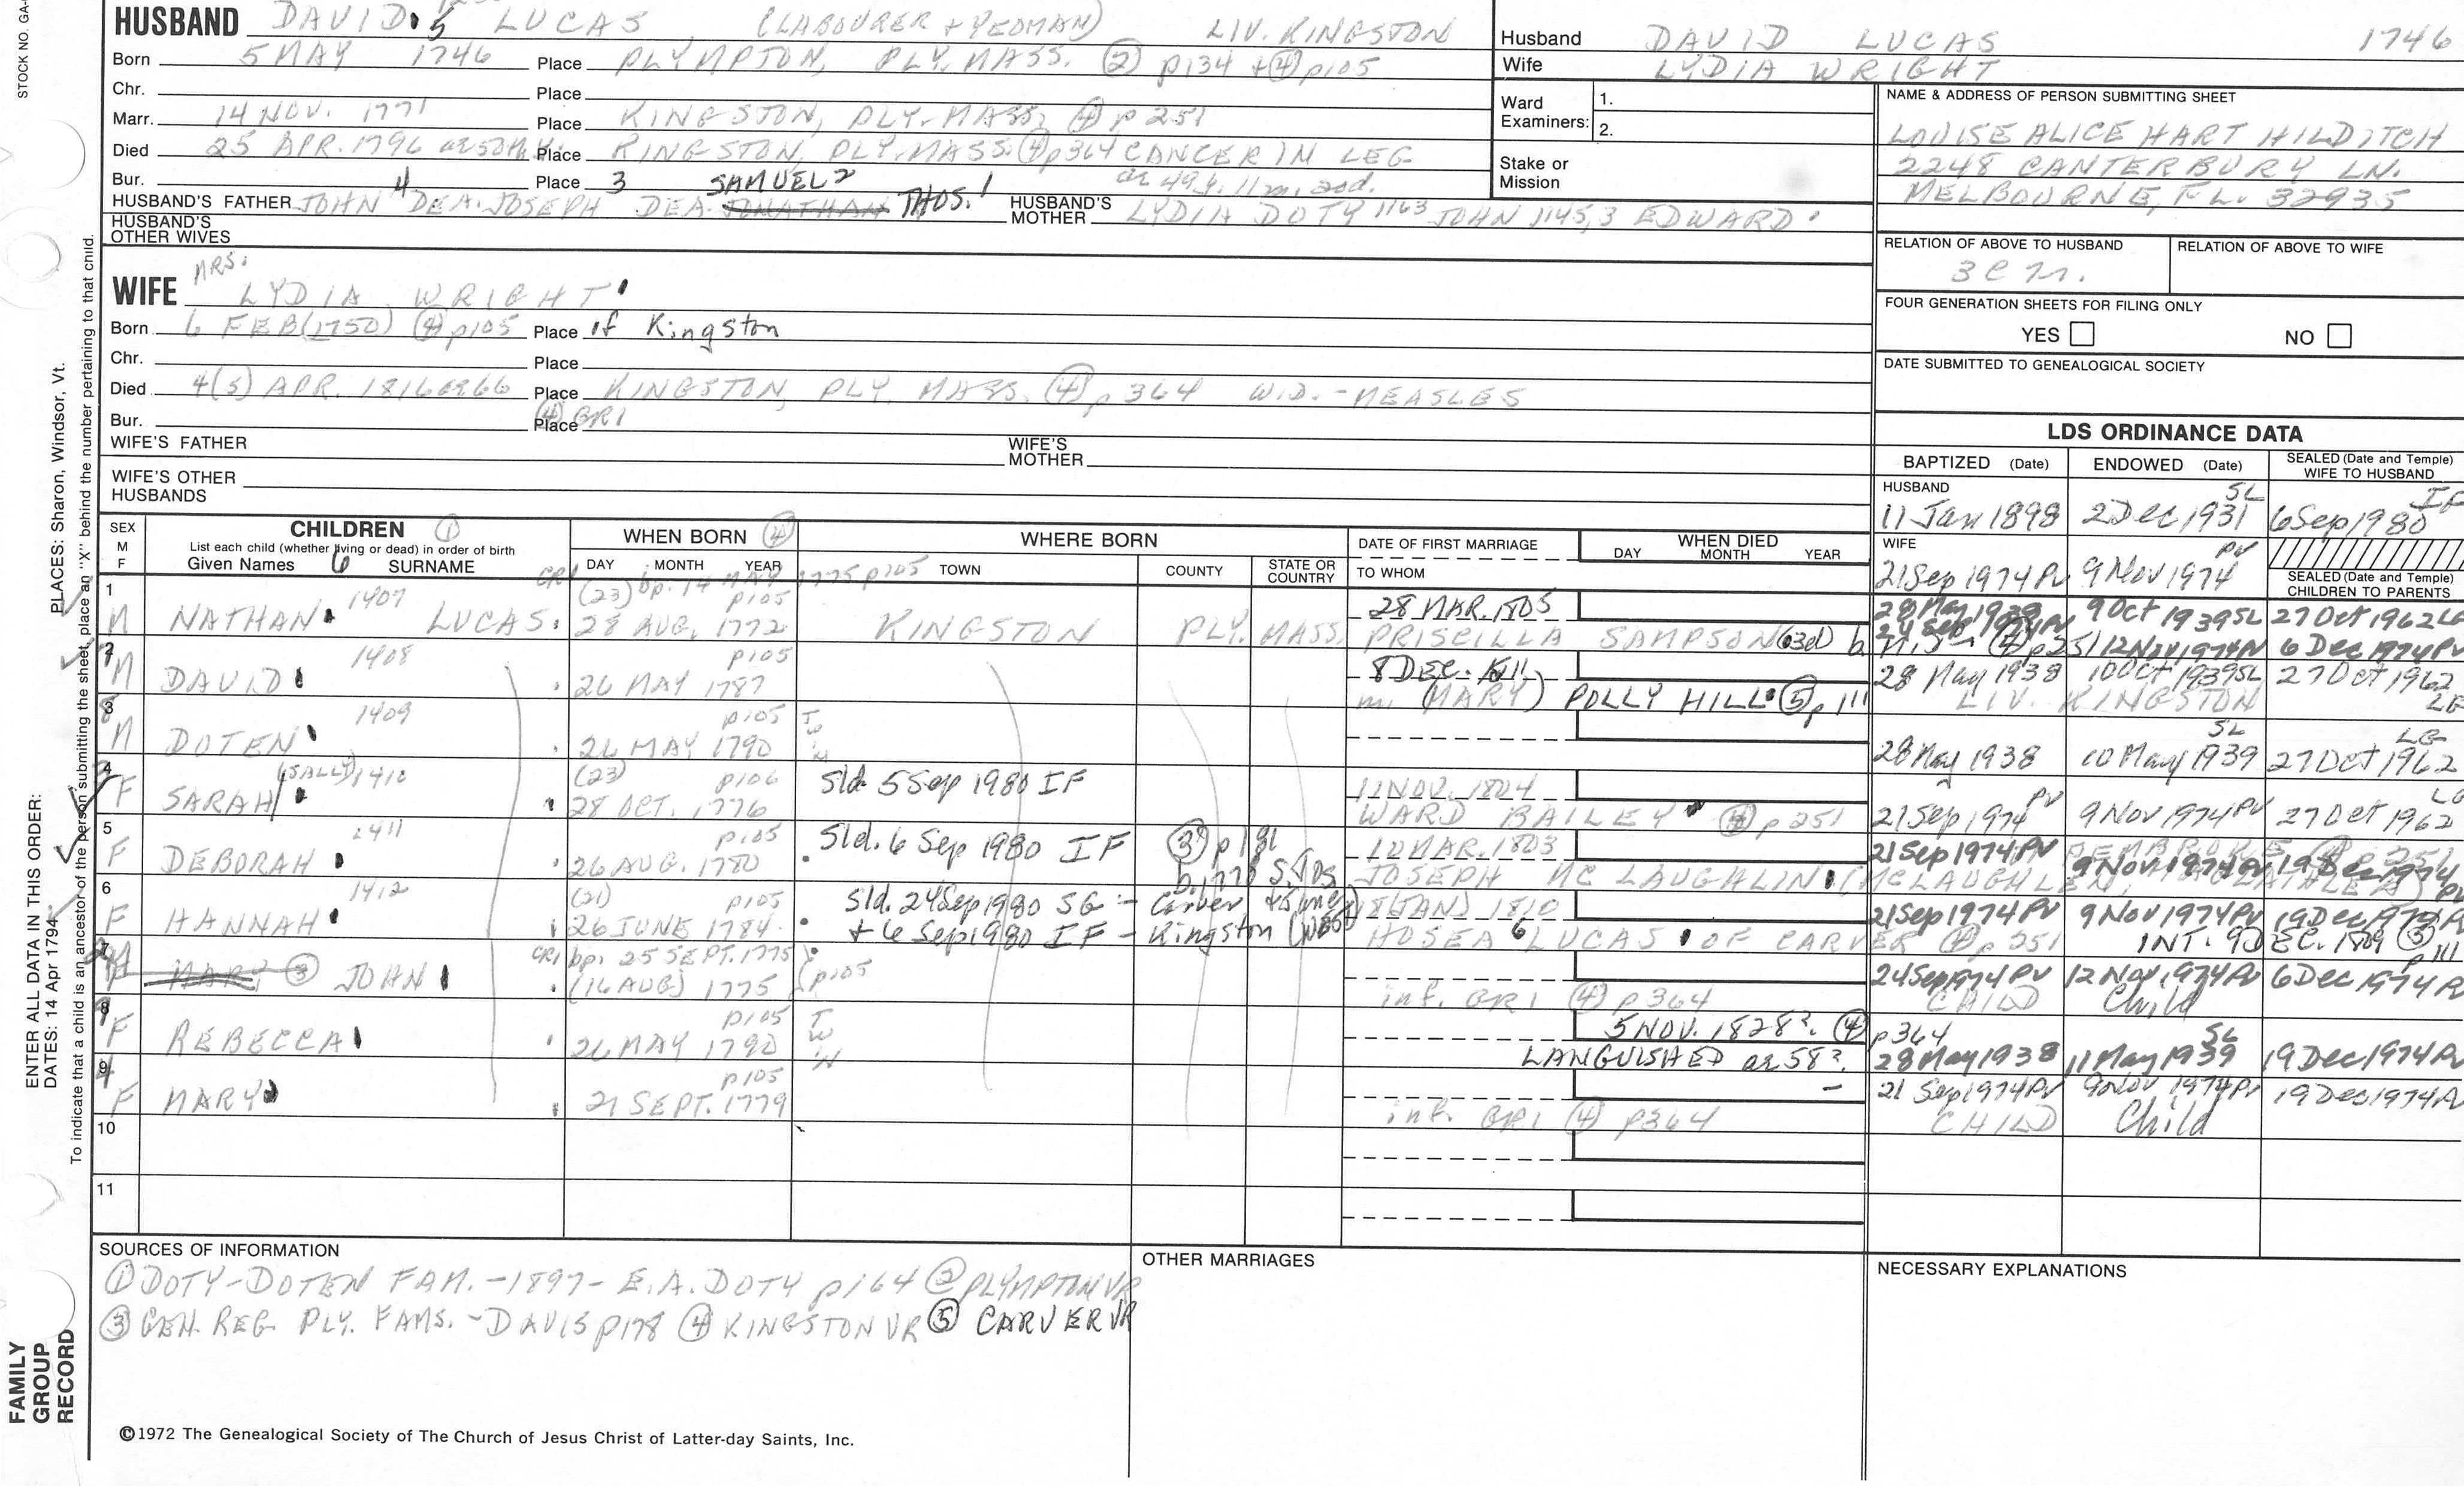 STOCK NO. GA-
HUSBAND DAVID 5 LUCAS (LABOURER + YEOMAN) LIV. KINGSTON
Born 5 MAY 1746 Place PLYMPTON, PLY. MASS. ② p134 + ④ p105
Chr. Place
Marr. 14 NOV. 1771 Place KINGSTON, PLY. MASS. ④ p 251
Died 25 APR. 1796 Place KINGSTON, PLY. MASS. ④ p364 CANCER IN LEG
Bur. Place
ae 49 y. 11 m. 20d.
HUSBAND'S FATHER JOHN 4 DEA. JOSEPH 3 DEA. JONATHAN SAMUEL 2 THOS. 1 HUSBAND'S MOTHER LYDIA DOTY 1163 JOHN 1145, 3 EDWARD
HUSBAND'S OTHER WIVES
MRS.
WIFE LYDIA WRIGHT
Born 6 FEB (1750) ④ p105 Place if Kingston
Chr. Place
Died 4(5) APR. 1816 ae 66 Place KINGSTON, PLY. MASS. ④ p 364 WID. - MEASLES
Bur. Place ④ GR1
WIFE'S FATHER WIFE'S MOTHER
WIFE'S OTHER HUSBANDS
Husband DAVID LUCAS 1746
Wife LYDIA WRIGHT
Ward Examiners: 1.
2.
Stake or Mission
NAME & ADDRESS OF PERSON SUBMITTING SHEET
LOUISE ALICE HART HILDITCH
2248 CANTERBURY LN.
MELBOURNE, FL. 32935
RELATION OF ABOVE TO HUSBAND RELATION OF ABOVE TO WIFE
FOUR GENERATION SHEETS FOR FILING ONLY
YES NO
DATE SUBMITTED TO GENEALOGICAL SOCIETY
LDS ORDINANCE DATA
BAPTIZED (Date) ENDOWED (Date) SEALED (Date and Temple) WIFE TO HUSBAND
HUSBAND
11 Jan 1898 2 Dec 1931 SL 6 Sep 1980 IF
WIFE
21 Sep 1974 PV 9 Nov 1974 PV
SEALED (Date and Temple) CHILDREN TO PARENTS
SEX M F
CHILDREN ①
List each child (whether living or dead) in order of birth
Given Names 6 SURNAME
WHEN BORN ④
DAY MONTH YEAR
WHERE BORN
TOWN COUNTY STATE OR COUNTRY
DATE OF FIRST MARRIAGE
TO WHOM
WHEN DIED
DAY MONTH YEAR
CR1 bp. 14 MAY 1775 p105
1 M NATHAN 1407 LUCAS (23) 28 AUG. 1772 p105 KINGSTON PLY. MASS. 28 MAR. 1805
PRISCILLA SAMPSON (3d)
28 May 1938 9 Oct 1939 SL 27 Oct 1962 LG
24 Sep 1974 PV 12 Nov 1974 PV 6 Dec 1974 PV
2 M DAVID 1408 26 MAY 1787 p105 8 DEC. 1811
m. (MARY) POLLY HILL ⑤ p 111
28 May 1938 10 Oct 1939 SL 27 Oct 1962 LG
LIV. KINGSTON
3 M DOTEN 1409 26 MAY 1790 p105 TWIN
28 May 1938 10 May 1939 SL 27 Oct 1962 LG
4 F SARAH (SALLY) 1410 (23) 28 OCT. 1776 p106 Sld. 5 Sep 1980 IF 11 NOV. 1804
WARD BAILEY ④ p 251
21 Sep 1974 PV 9 Nov 1974 PV 27 Oct 1962 LG
5 F DEBORAH 1411 26 AUG. 1780 p105 Sld. 6 Sep 1980 IF ③ p 181 10 MAR. 1803
JOSEPH MC LAUGHLIN
21 Sep 1974 PV 9 Nov 1974 PV 19 Dec 1974 PV
6 F HANNAH 1412 (21) 26 JUNE 1784 p105 Sld. 24 Sep 1980 SG - Carver 18 (JAN) 1810
+ 6 Sep 1980 IF - Kingston
HOSEA 6 LUCAS OF CARVER ④ p 251
21 Sep 1974 PV 9 Nov 1974 PV 19 Dec 1974 PV
INT. 9 DEC. 1809 ⑤ p 111
7 MARY ③ JOHN CR1 bp. 25 SEPT. 1775
(16 AUG) 1775 p105
inf. GR1 ④ p 364
24 Sep 1974 PV 12 Nov 1974 PV 6 Dec 1974 PV
CHILD Child
8 F REBECCA 26 MAY 1790 p105 TWIN 5 NOV. 1828? ④ p364
LANGUISHED ae 58?
28 May 1938 11 May 1939 SL 19 Dec 1974 PV
9 F MARY 21 SEPT. 1779 p105
inf. GR1 ④ p364
21 Sep 1974 PV 9 Nov 1974 PV 19 Dec 1974 PV
CHILD Child
10
11
SOURCES OF INFORMATION
① DOTY-DOTEN FAM. - 1897 - E.A. DOTY p164 ② PLYMPTON VR
③ GEN. REG. PLY. FAMS. - DAVIS p178 ④ KINGSTON VR ⑤ CARVER VR
OTHER MARRIAGES
NECESSARY EXPLANATIONS
©1972 The Genealogical Society of The Church of Jesus Christ of Latter-day Saints, Inc.
FAMILY GROUP RECORD
ENTER ALL DATA IN THIS ORDER:
DATES: 14 Apr 1794 PLACES: Sharon, Windsor, Vt.
To indicate that a child is an ancestor of the person submitting the sheet, place an "X" behind the number pertaining to that child.